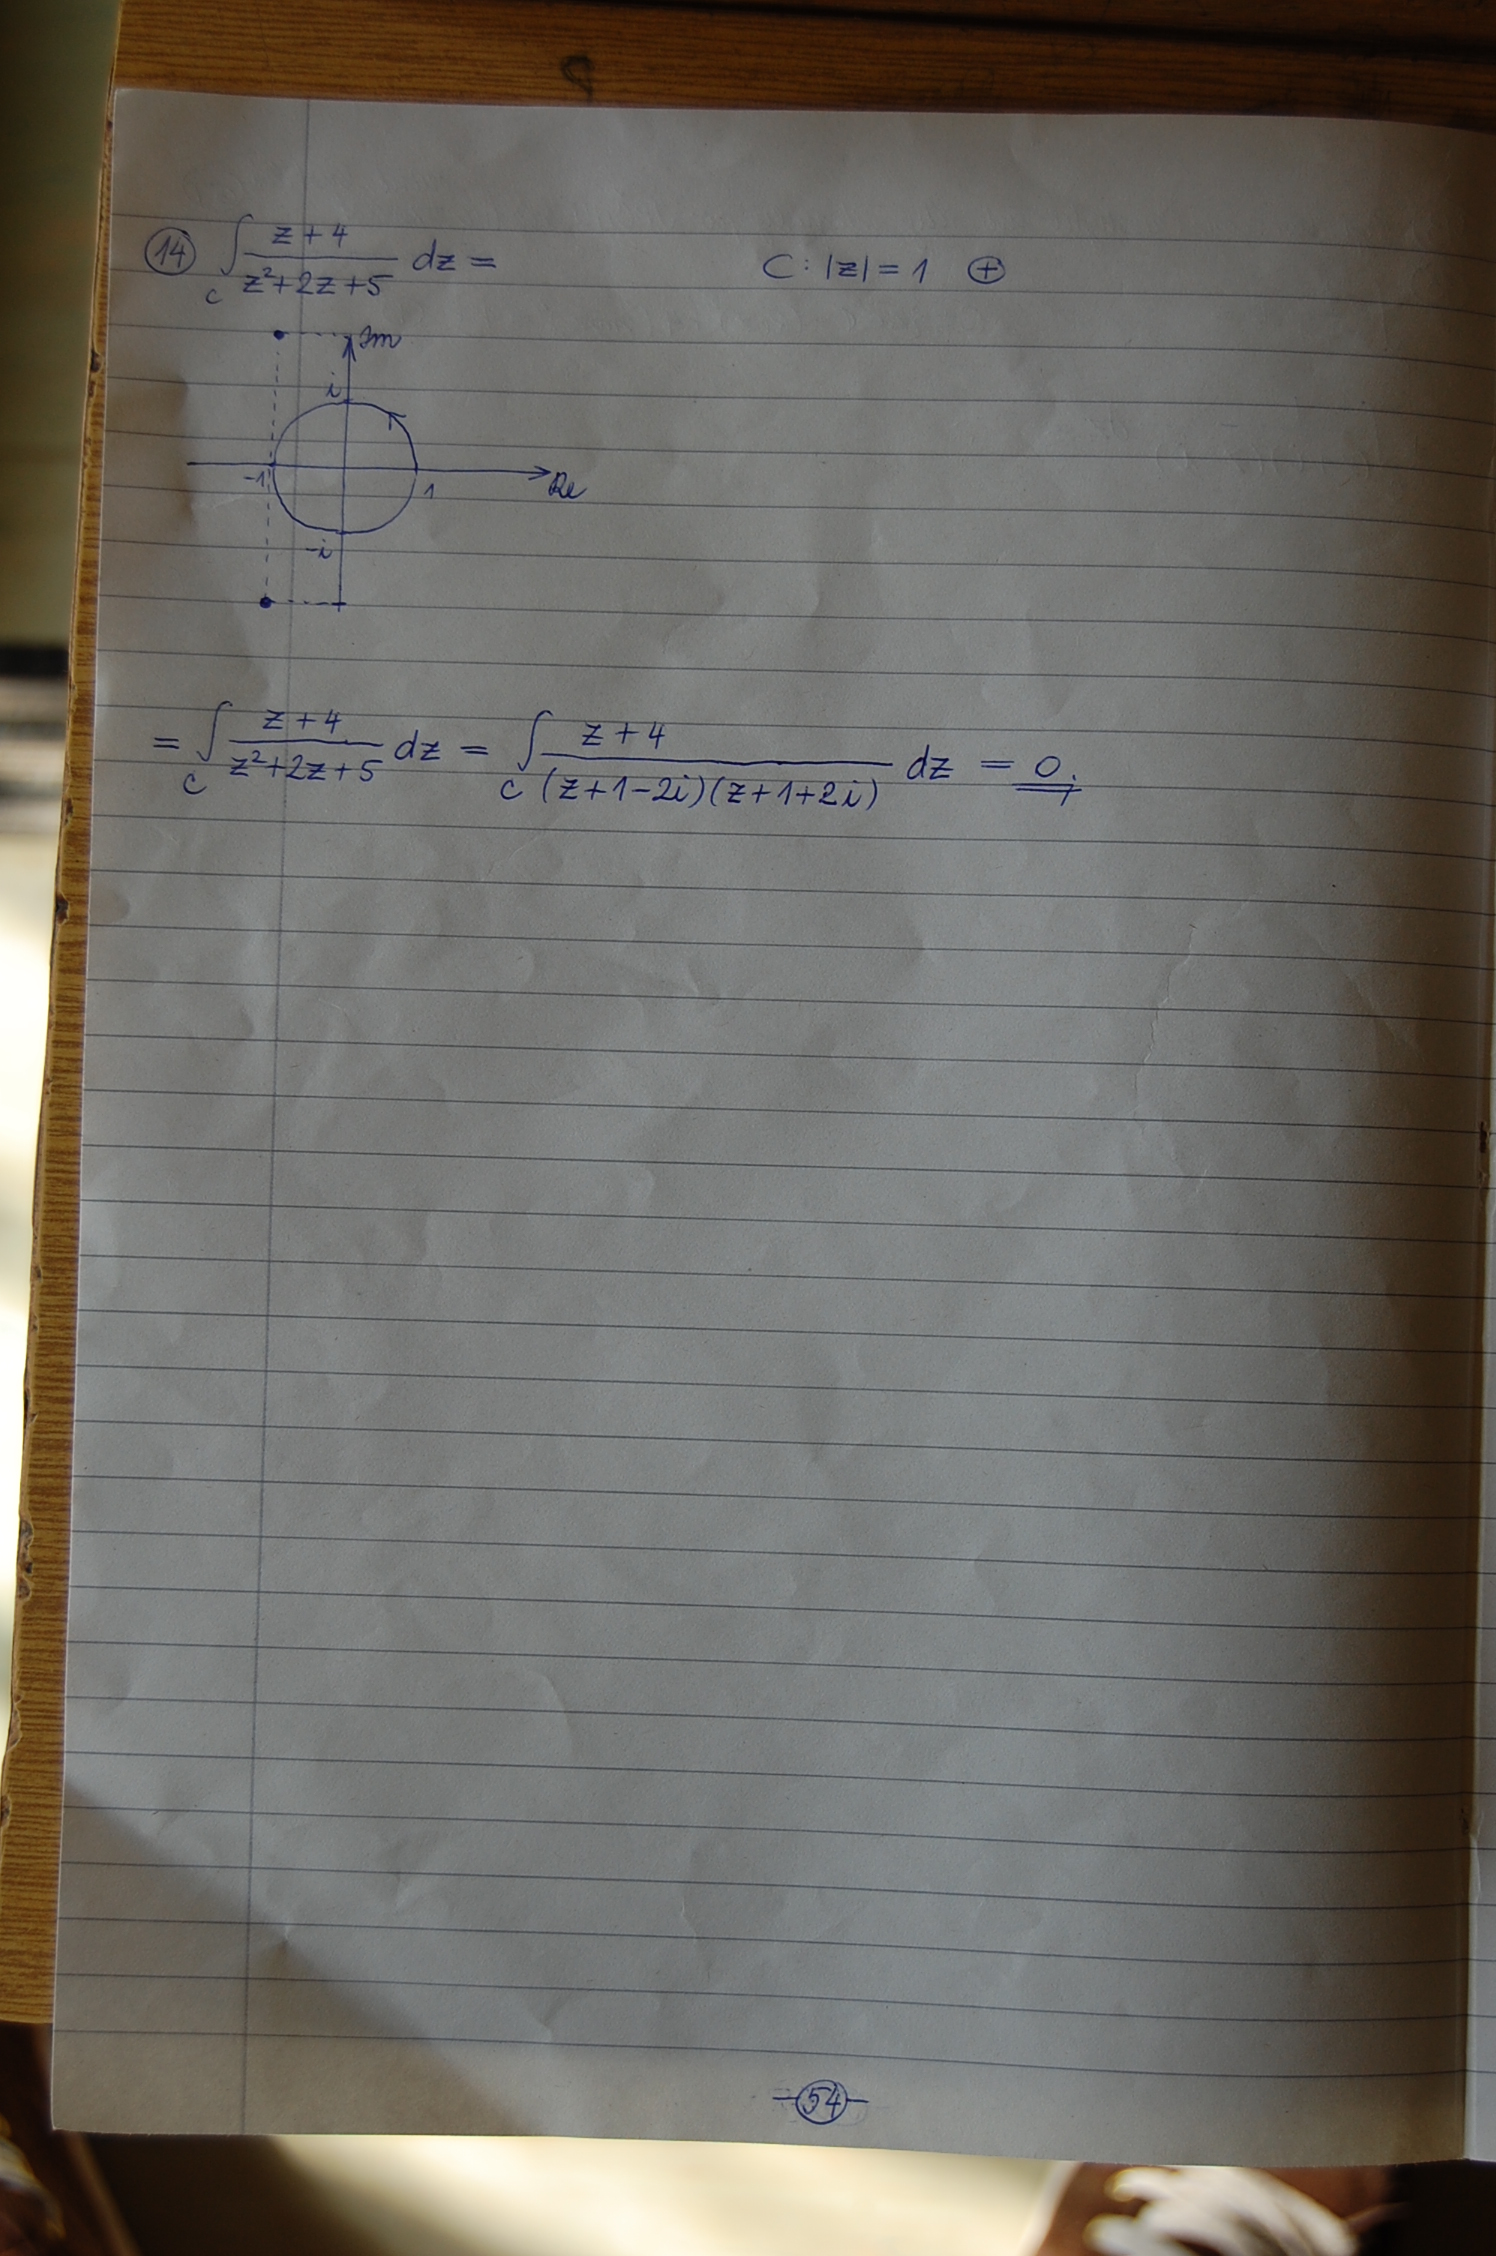 14 ∫_C (z+4)/(z²+2z+5) dz = C: |z|=1 ⊕
Im
i
-1 1 Re
-i
= ∫_C (z+4)/(z²+2z+5) dz = ∫_C (z+4)/((z+1-2i)(z+1+2i)) dz = 0.
54